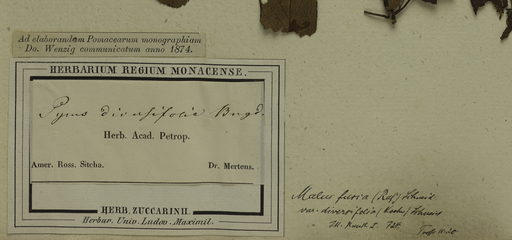 Ad elaborandam Pomacearum monographiam
Do. Wenzig communicatum anno 1874.
HERBARIUM REGIUM MONACENSE.
Pyrus diversifolia Bngd.
Herb. Acad. Petrop.
Amer. Ross. Sitcha. Dr. Mertens.
HERB. ZUCCARINII.
Herbar. Univ. Ludov. Maximil.
Malus fusca (Raf) Schneid.
var. diversifolia (Koehne) Schneid
Ill. Handb. I. 724